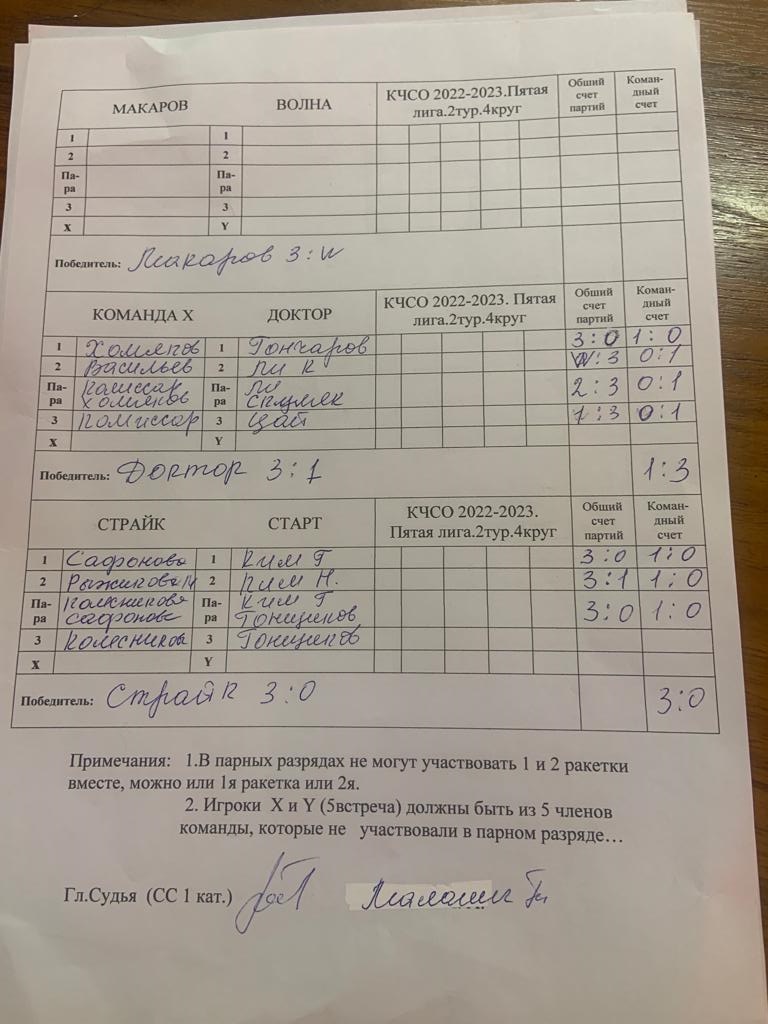 МАКАРОВ ВОЛНА КЧСО 2022-2023.Пятая лига.2тур.4круг Общий счет партий Коман-дный счет
1 1
2 2
Па-ра Па-ра
3 3
X Y
Победитель: Макаров 3:W
КОМАНДА X ДОКТОР КЧСО 2022-2023. Пятая лига.2тур.4круг Общий счет партий Коман-дный счет
1 Хомяков 1 Гончаров 3:0 1:0
2 Васильев 2 Ли К W:3 0:1
Па-ра Комиссар Хомяков Па-ра Ли 2:3 0:1
3 Комиссар 3 Цай 1:3 0:1
X Y
Победитель: Доктор 3:1 1:3
СТРАЙК СТАРТ КЧСО 2022-2023. Пятая лига.2тур.4круг Общий счет партий Коман-дный счет
1 Сафонова 1 Ким Г 3:0 1:0
2 Рыжикова М 2 Ким Н. 3:1 1:0
Па-ра Колесникова Сафонова Па-ра Ким Г Гонщиков 3:0 1:0
3 Колесникова 3 Гонщиков
X Y
Победитель: Страйк 3:0 3:0
Примечания: 1.В парных разрядах не могут участвовать 1 и 2 ракетки
вместе, можно или 1я ракетка или 2я.
2. Игроки X и Y (5встреча) должны быть из 5 членов
команды, которые не участвовали в парном разряде…
Гл.Судья (СС 1 кат.)